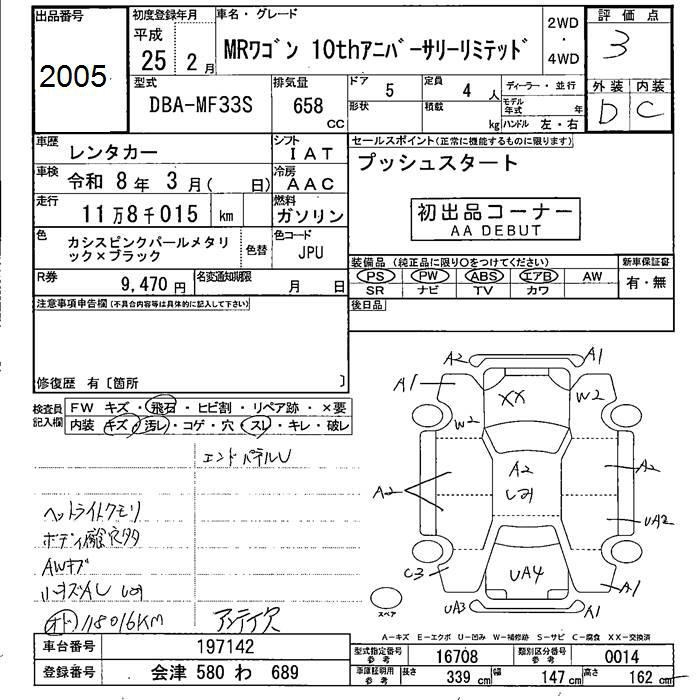 出品番号
2005
初度登録年月
平成
25 年 2 月
車名・グレード
MRワゴン 10thアニバーサリーリミテッド
2WD
・
4WD
評価点
3
外装 内装
D C
型式
DBA-MF33S
排気量
658
CC
ドア
5
定員
4 人
形状
積載
kg
ディーラー・並行
モデル年式 年
ハンドル 左・右
車歴
レンタカー
シフト
IAT
車検
令和 8 年 3 月 ( 日)
冷房
AAC
走行
11万8千015 km
燃料
ガソリン
色
カシスピンクパールメタリ
ック×ブラック
色替
色コード
JPU
R券
9,470 円
名変通知期限
月 日
セールスポイント(正常に機能するものに限ります)
プッシュスタート
初出品コーナー
AA DEBUT
装備品 (純正品に限り○をつけてください)
PS PW ABS エアB AW
SR ナビ TV カワ
新車保証書
有・無
後日品
注意事項申告欄(不具合内容等は具体的に記入して下さい)
修復歴 有〔箇所 〕
検査員
記入欄
FW キズ・飛石・ヒビ割・リペア跡・×要
内装 キズ・汚レ・コゲ・穴・スレ・キレ・破レ
エンドパネルU
ヘットライトクモリ
AWキズ
118016KM
A2 A1
A1 XX W2
W2
A2
A2
シミ
A2
UA2
C3
UA4
A1
UA3 A1
スペア
A-キズ E-エクボ U-凹み W-補修跡 S-サビ C-腐食 XX-交換済
車台番号
197142
登録番号
会津 580 わ 689
型式指定番号
参考
16708
類別区分番号
参考
0014
車庫証明用
参考
長さ
339 cm
幅
147 cm
高さ
162 cm